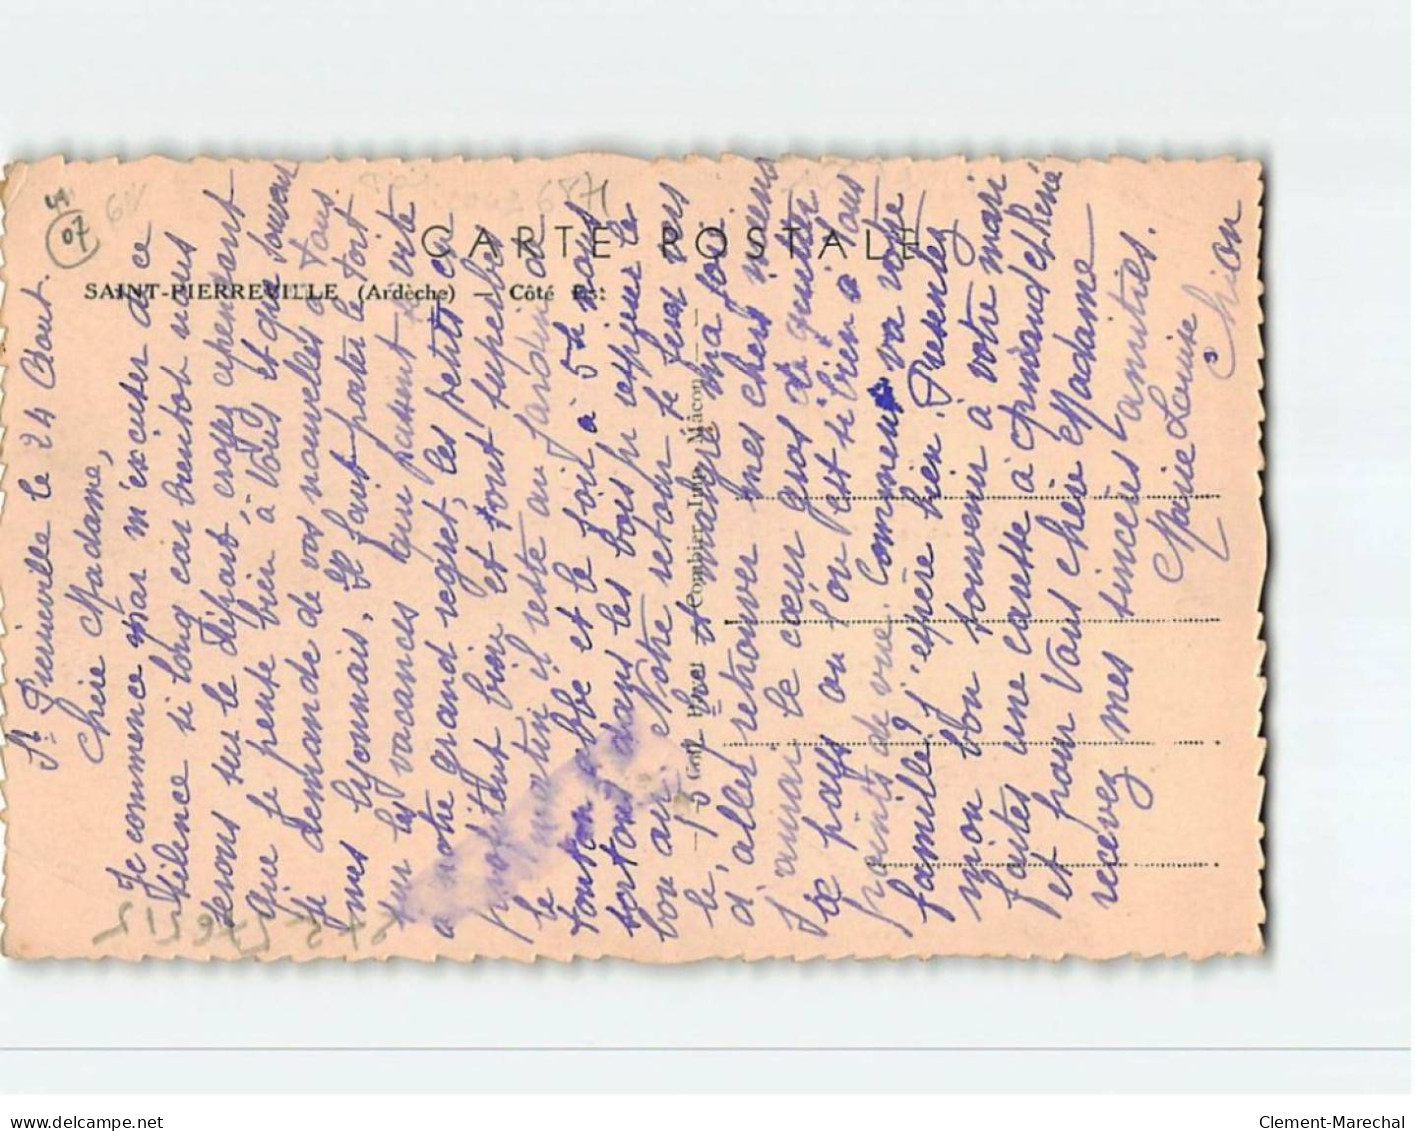 CARTE POSTALE
SAINT-PIERREVILLE (Ardèche) - Côté Est
07
St Pierreville le 24 Août.
Chère Madame,
Je commence par m'excuser de ce
silence si long car bientôt nous
serons sur le départ, crayez cependant
que je pense bien à vous et que souvent
je demande de vos nouvelles à tous
mes lyonnais. Il faut porter le tort
sur les vacances qui passent vite
à notre grand regret, les petits en
profitent bien et sont superbes
le matin il reste au jardin de
tonton abbé et le soir à 5h nous
sortons dans les bois pr respirer le
bon air. Notre retour se fera vers
le 15 et malgré ma joie
d'aller retrouver mes chers miens
j'aurai le cœur gros de quitter
ce pays ou l'on est si bien à tous
points de vue. Comment va votre
famille? j'espère bien. Présentez
mon bon souvenir à votre mari
faites une caresse à Armand chéri
et pour vous chère Madame
recevez mes sincères amitiés.
Marie Louise
Chion
Combier Imp. Mâcon
delcampe.net
Clement-Marechal